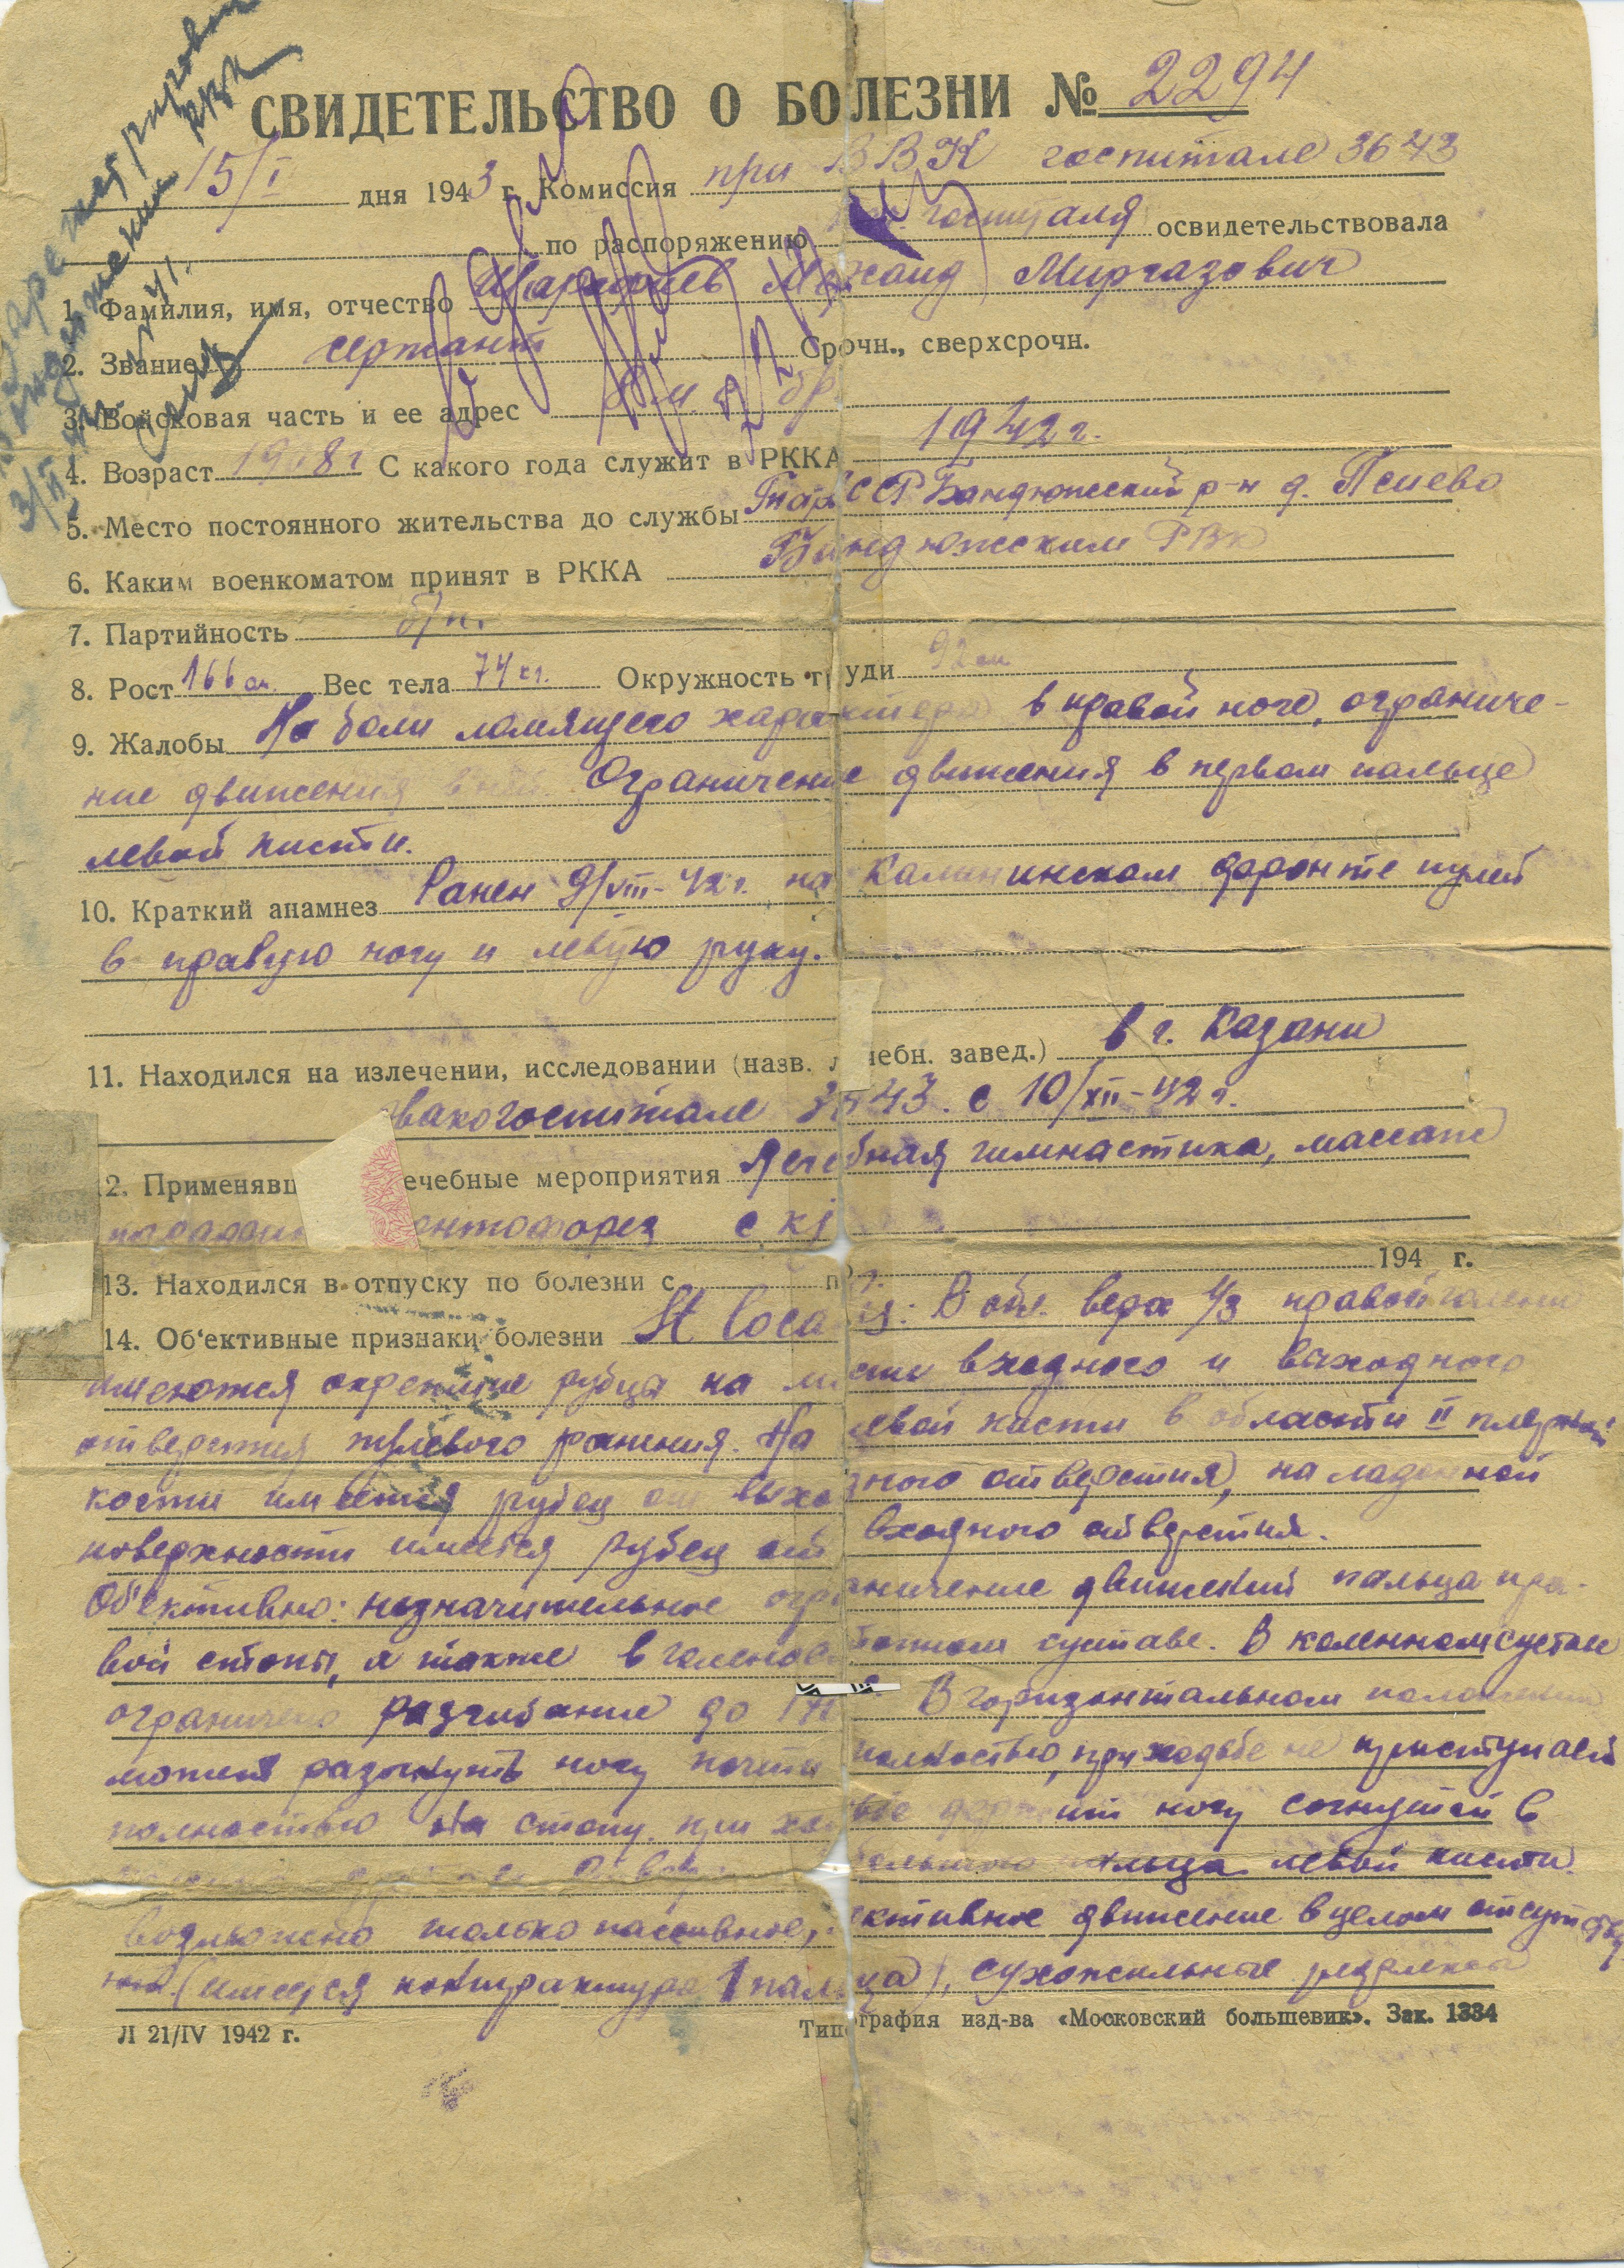 СВИДЕТЕЛЬСТВО О БОЛЕЗНИ № 2294
15/I дня 1943 г. Комиссия при ВВК госпитале 3643
по распоряжению госпиталя освидетельствовала
1. Фамилия, имя, отчество Миргазович
2. Звание сержант Срочн., сверхсрочн.
3. Войсковая часть и ее адрес
4. Возраст 1908 г С какого года служит в РККА 1942 г.
5. Место постоянного жительства до службы ТатАССР Бондюжский р-н д. Псеево
6. Каким военкоматом принят в РККА Бондюжским РВК
7. Партийность б/п.
8. Рост 166 см. Вес тела 74 кг. Окружность груди 92 см
9. Жалобы На боли ломящего характера в правой ноге, ограниче-
ние движения в ней. Ограничение движения в первом пальце
левой кисти.
10. Краткий анамнез Ранен 9/VIII-42 г. на Калининском фронте пулей
в правую ногу и левую руку.
11. Находился на излечении, исследовании (назв. лечебн. завед.) в г. Казани
эвакогоспитале 3643. с 10/XII-42 г.
12. Применявш лечебные мероприятия Лечебная гимнастика, массаж
ентофорез с KJ
13. Находился в отпуску по болезни с по 194 г.
14. Об'ективные признаки болезни St. localis: В обл. верх 1/3 правой голени
имеются окрепшие рубцы на месте входного и выходного
отверстия пулевого ранения. На левой кисти в области II
кости имеется рубец от выходного отверстия), на ладонной
поверхности имеется рубец от входного отверстия.
Об'ективно: незначительное ограничение движений пальца пра-
вой стопы, а также в голеностопном суставе. В коленном суставе
ограничено разгибание до В горизонтальном положении
может разогнуть ногу почти полностью, при ходьбе не приступает
полностью на стопу, при ходьбе держит ногу согнутой в
большого пальца левой кисти
возможно только пассивное, активное движение в целом отсутству
ет. (имеется контрактура I пальца), сухожильные рефлексы
Л 21/IV 1942 г. Типография изд-ва «Московский большевик». Зак. 1334